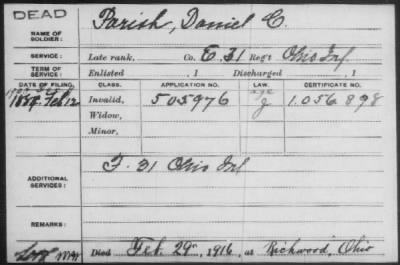 DEAD
NAME OF SOLDIER: Parish, Daniel C.
SERVICE: Late rank, Co. E. 31 Reg't Ohio Inf.
TERM OF SERVICE: Enlisted , 1 Discharged , 1
DATE OF FILING. CLASS. APPLICATION NO. LAW. CERTIFICATE NO.
Feb 12 Invalid, 505976 1.056 898
Widow,
Minor,
ADDITIONAL SERVICES: F. 31 Ohio Inf
REMARKS:
Died Feb. 29", 1916, at Richwood, Ohio